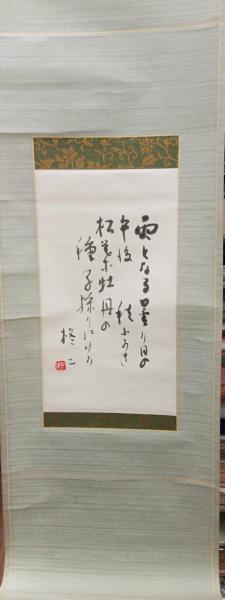 雨となる曇り日の
午後 秩父のさ
松葉牡丹の
種子採りにけり
柊二